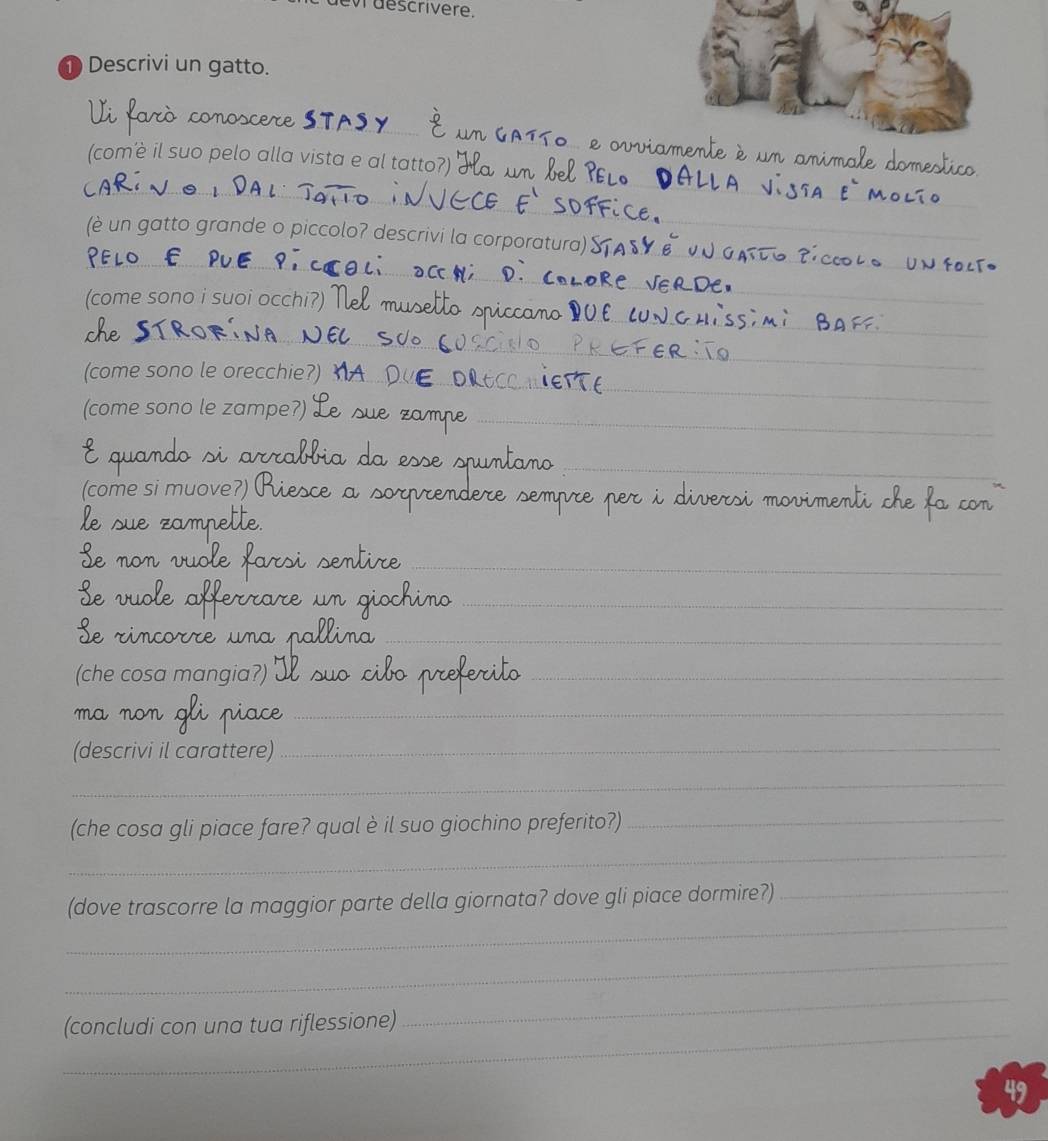 devi descrivere.
1 Descrivi un gatto.
Vi farò conoscere STASY È un GATTO e ovviamente è un animale domestico.
(com'è il suo pelo alla vista e al tatto?) Ha un bel PELO DALLA ViSTA E' MOLTO
CARiNO, DAL TATTO iNVECE E' SOFFiCE.
(è un gatto grande o piccolo? descrivi la corporatura) STASY E' UN GATTO PiCCOLO UN FOLTO
PELO E DUE PiCCOLi OCCHi Di COLORE VERDE.
(come sono i suoi occhi?) Nel musetto spiccano DUE LUNGHiSSiMi BAFFi
che STROFiNA NEL SUO CUSCiNO PREFERiTO
(come sono le orecchie?) HA DUE ORECCHiETTE
(come sono le zampe?) Le sue zampe
E quando si arrabbia da esse spuntano
(come si muove?) Riesce a sorprendere sempre per i diversi movimenti che fa con
le sue zampette.
Se non vuole farsi sentire
Se vuole afferrare un giochino
Se rincorre una pallina
(che cosa mangia?) Il suo cibo preferito
ma non gli piace
(descrivi il carattere)
(che cosa gli piace fare? qual è il suo giochino preferito?)
(dove trascorre la maggior parte della giornata? dove gli piace dormire?)
(concludi con una tua riflessione)
49